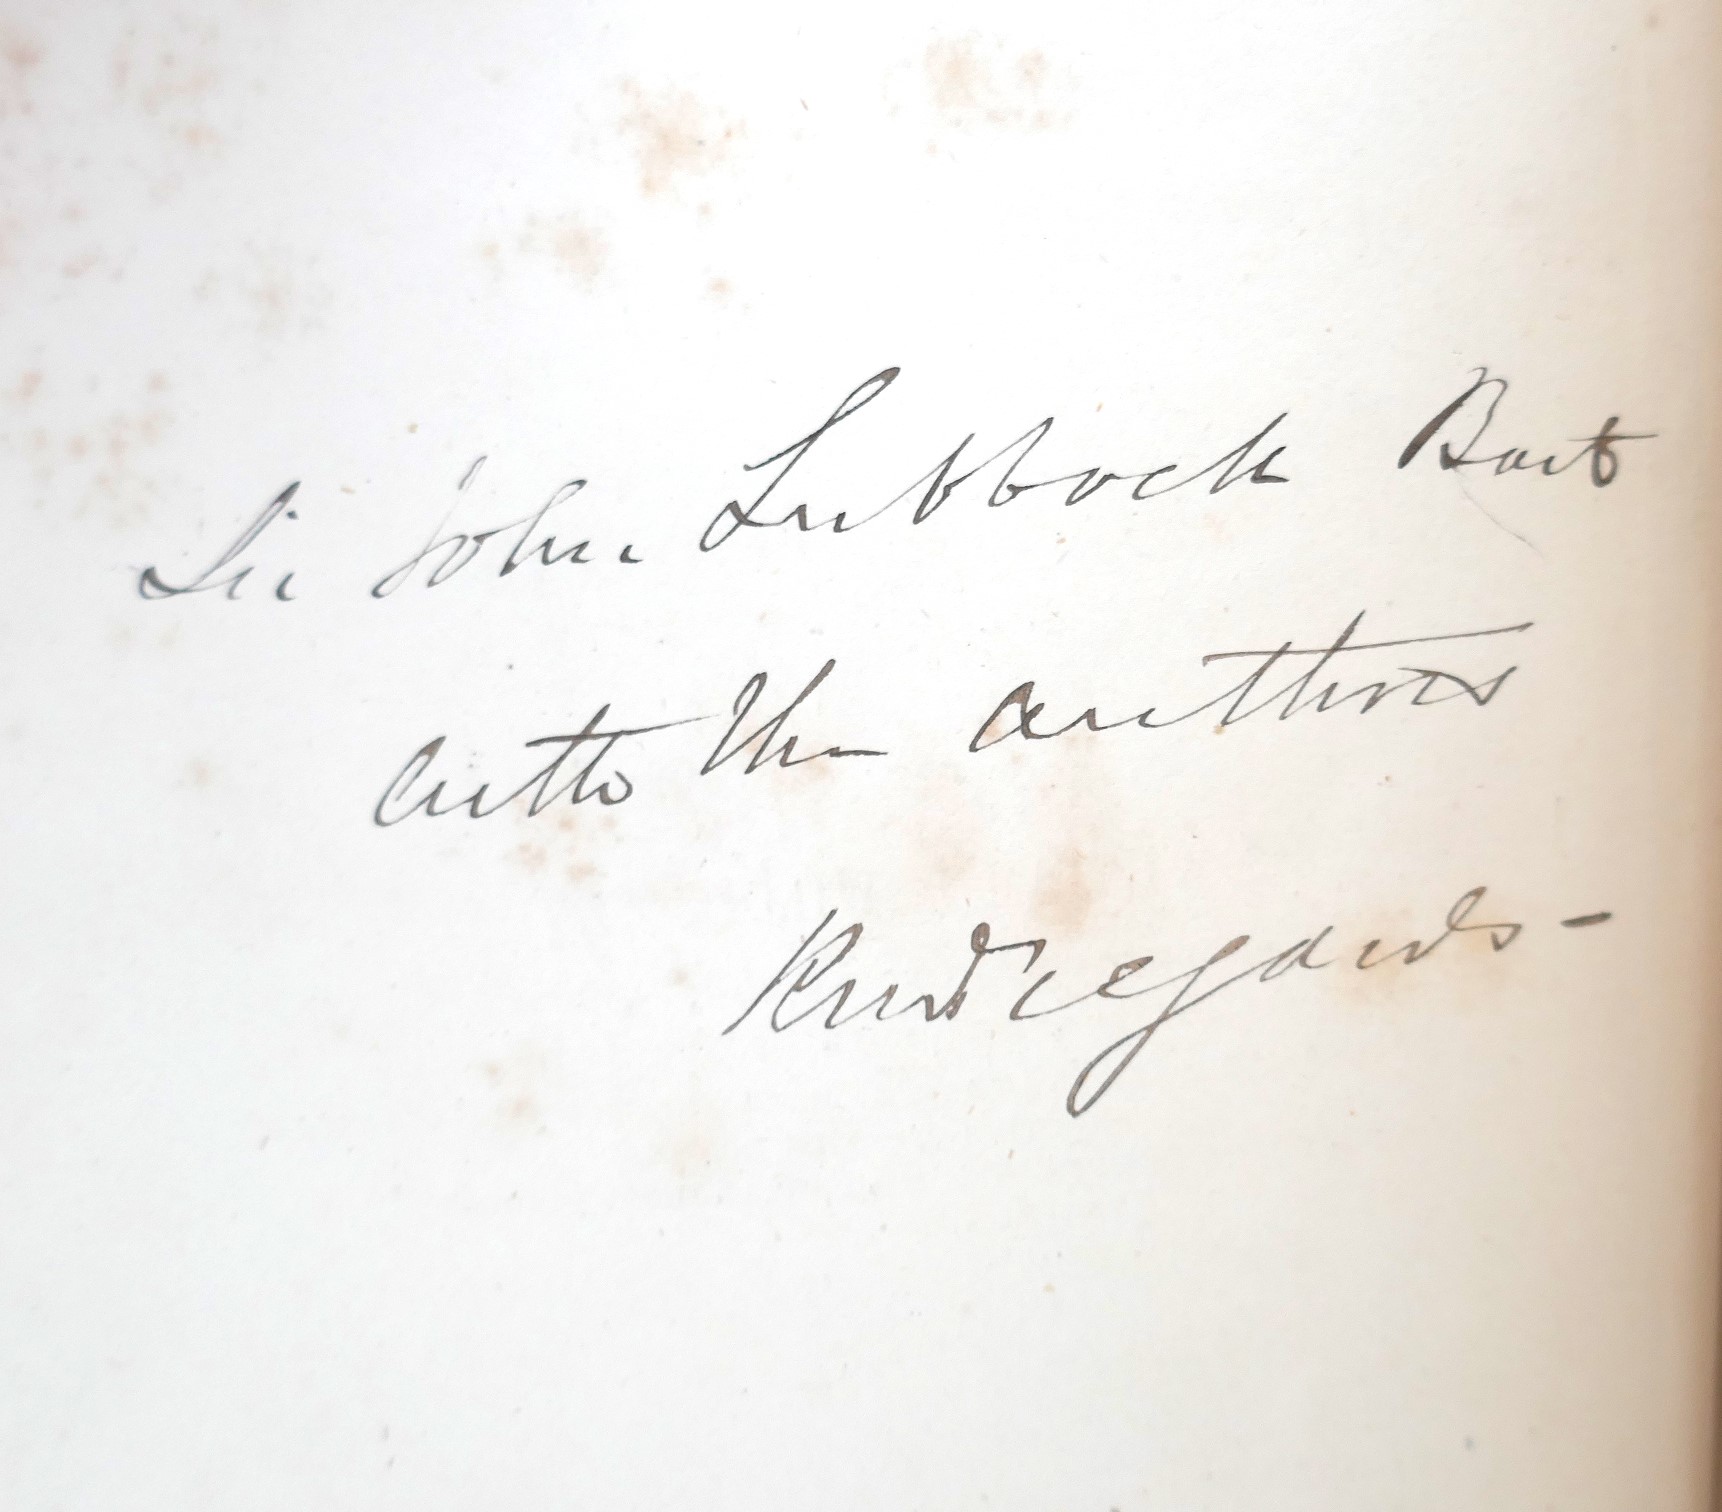 Sir John Lubbock Bart
with the authors
Kind regards -